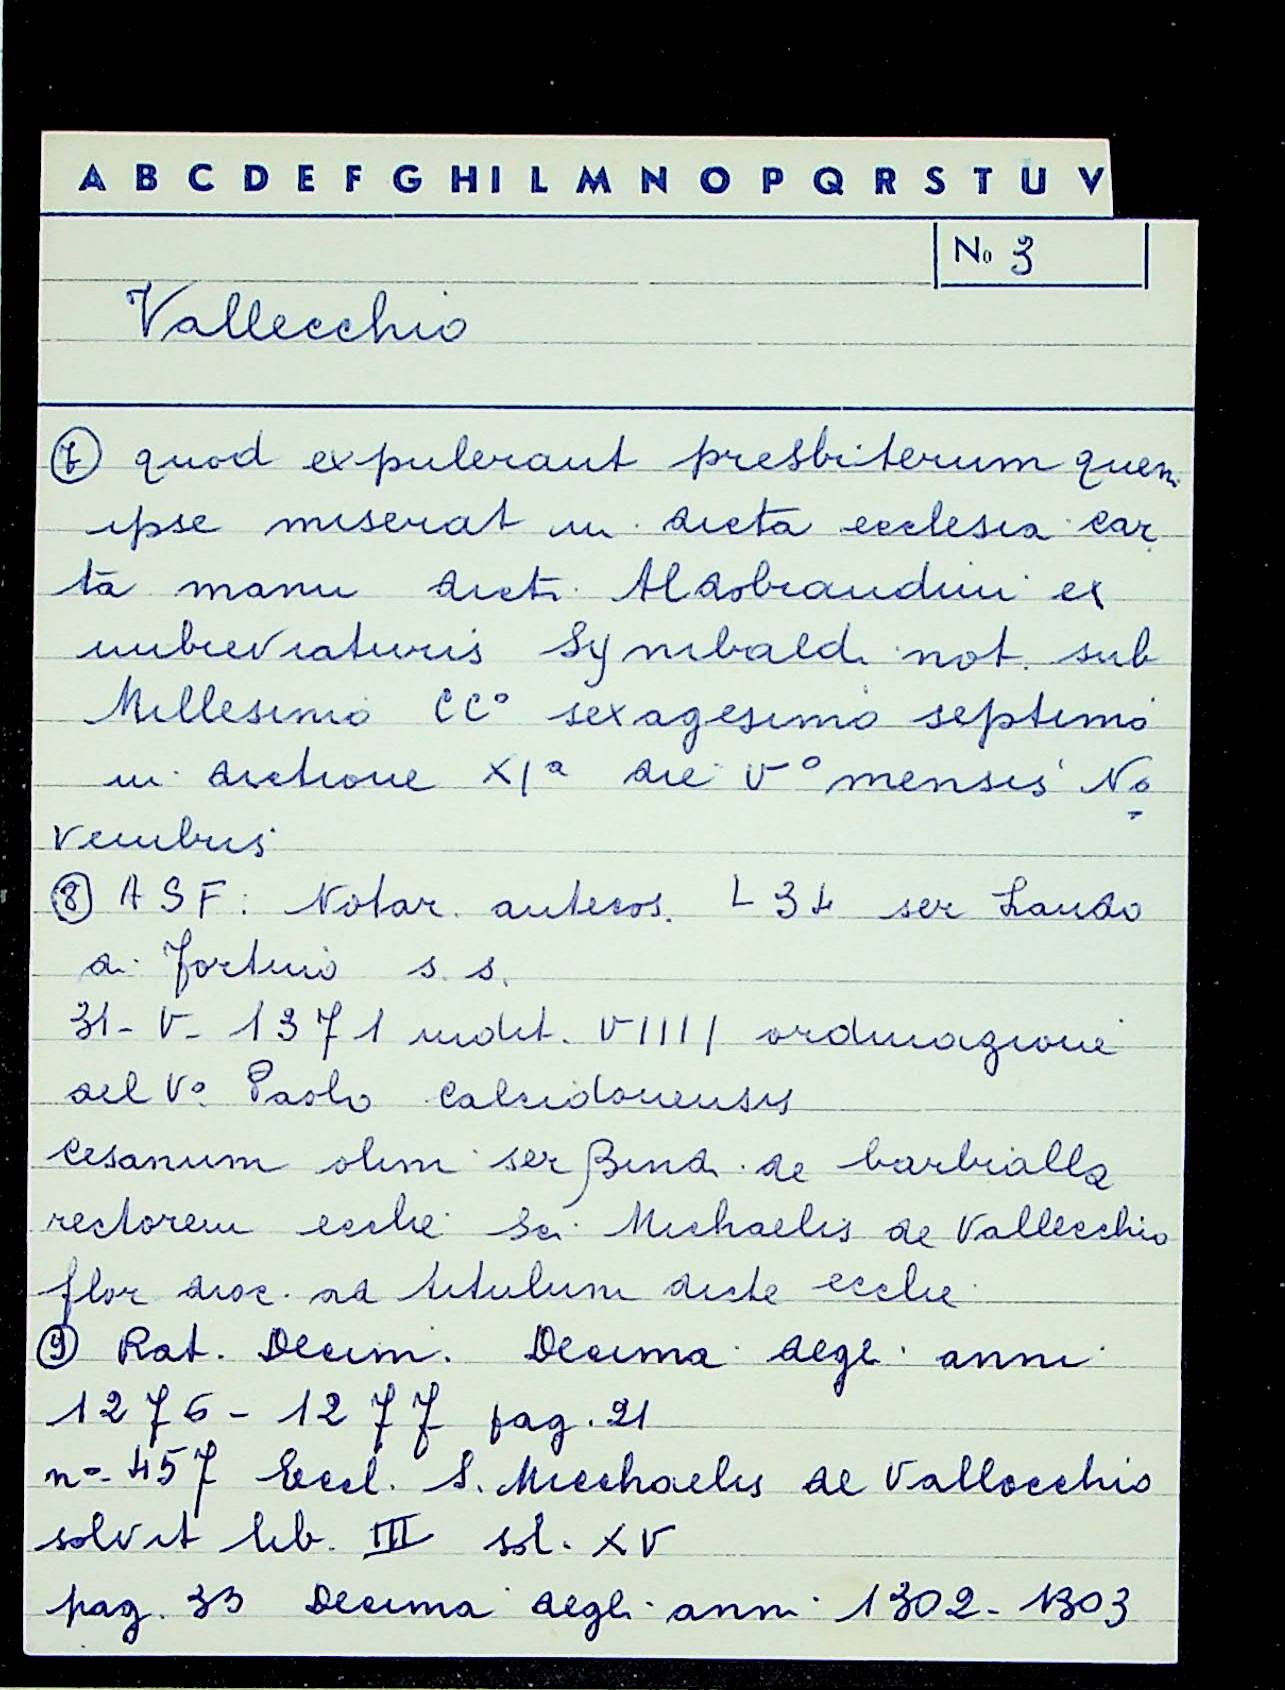 A B C D E F G H I L M N O P Q R S T U V
No 3
Vallecchio
⑦ quod expulerant presbiterum quem
ipse miserat in dicta ecclesia car
ta manu dicti Aldobrandini ex
imbreviaturis Synibaldi not. sub
Millesimo CC° sexagesimo septimo
in dictione XIª die V° mensis No
vembris
⑧ ASF: Notar. antecos. L 34 ser Lando
di Fortino s. s.
31- V- 1371 indit. VIIII ordinazione
del V° Paolo Calcidonensis
Cesanum olim ser Bindi de barbialla
rectorem ecclie Sci Michaelis de Vallecchio
flor dioc. ad titulum dicte ecclie
⑨ Rat. Decim. Decima degli anni
1276 - 1277 pag. 21
n°- 457 Eccl. S. Micchaelis de Vallocchio
solvit lib. III sol. XV
pag. 33 Decima degli anni 1302 - 1303